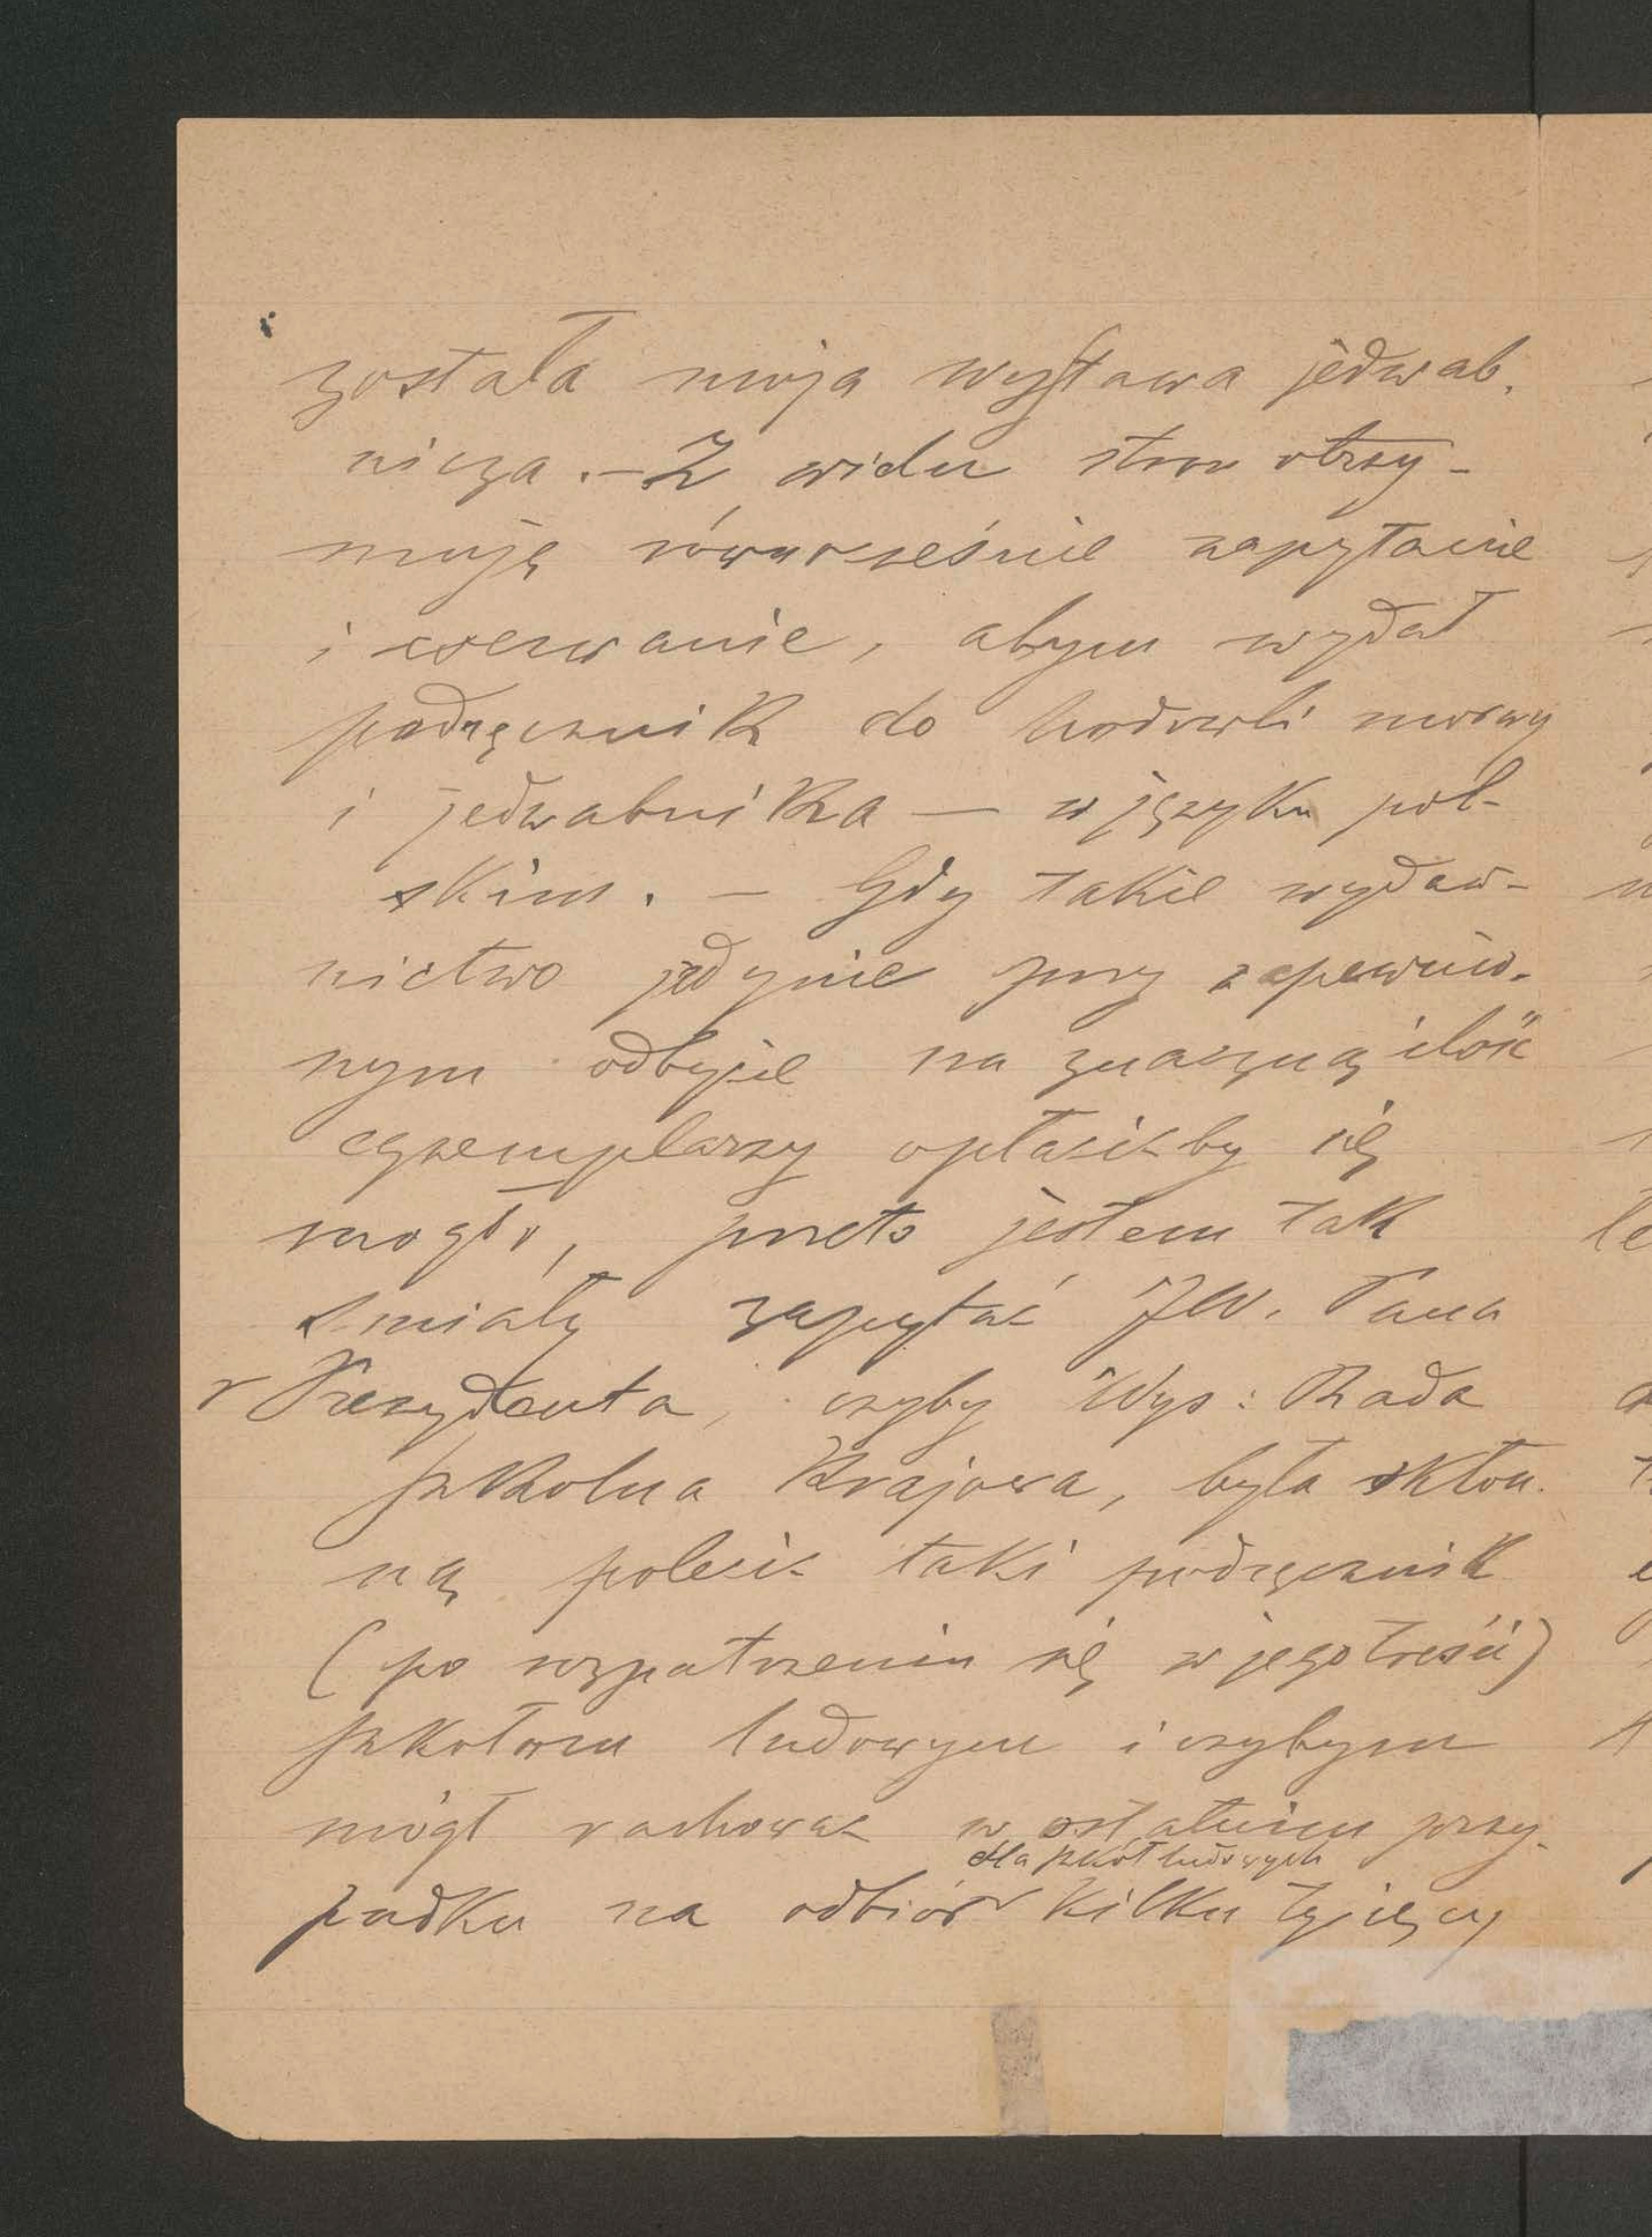 została moja wystawa jedwab-
nicza. – Z wielu stron otrzy-
muję równocześnie zapytanie
i wezwanie, abym wydał
podręcznik do hodowli morwy
i jedwabnika — w języku pol-
skim. — Gdy takie wydaw-
nictwo jedynie przy zapewnio-
nym odbycie na znaczną ilość
egzemplarzy opłacićby się
mogło, przeto jestem tak
śmiały zapytać JW. Pana
Prezydenta, czyby Wys: Rada
szkolna Krajowa, była skłon-
ną polecić taki podręcznik
(po rozpatrzeniu się w jego treści)
szkołom ludowym i czybym
mógł rachować w ostatnim przy-
dla szkół ludowych
padku na odbiór kilku tysięcy